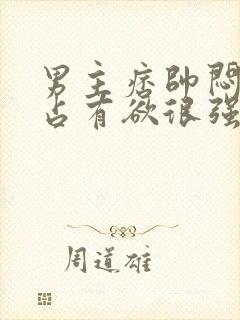 男主痞帅闷
占有欲很强
周道雄